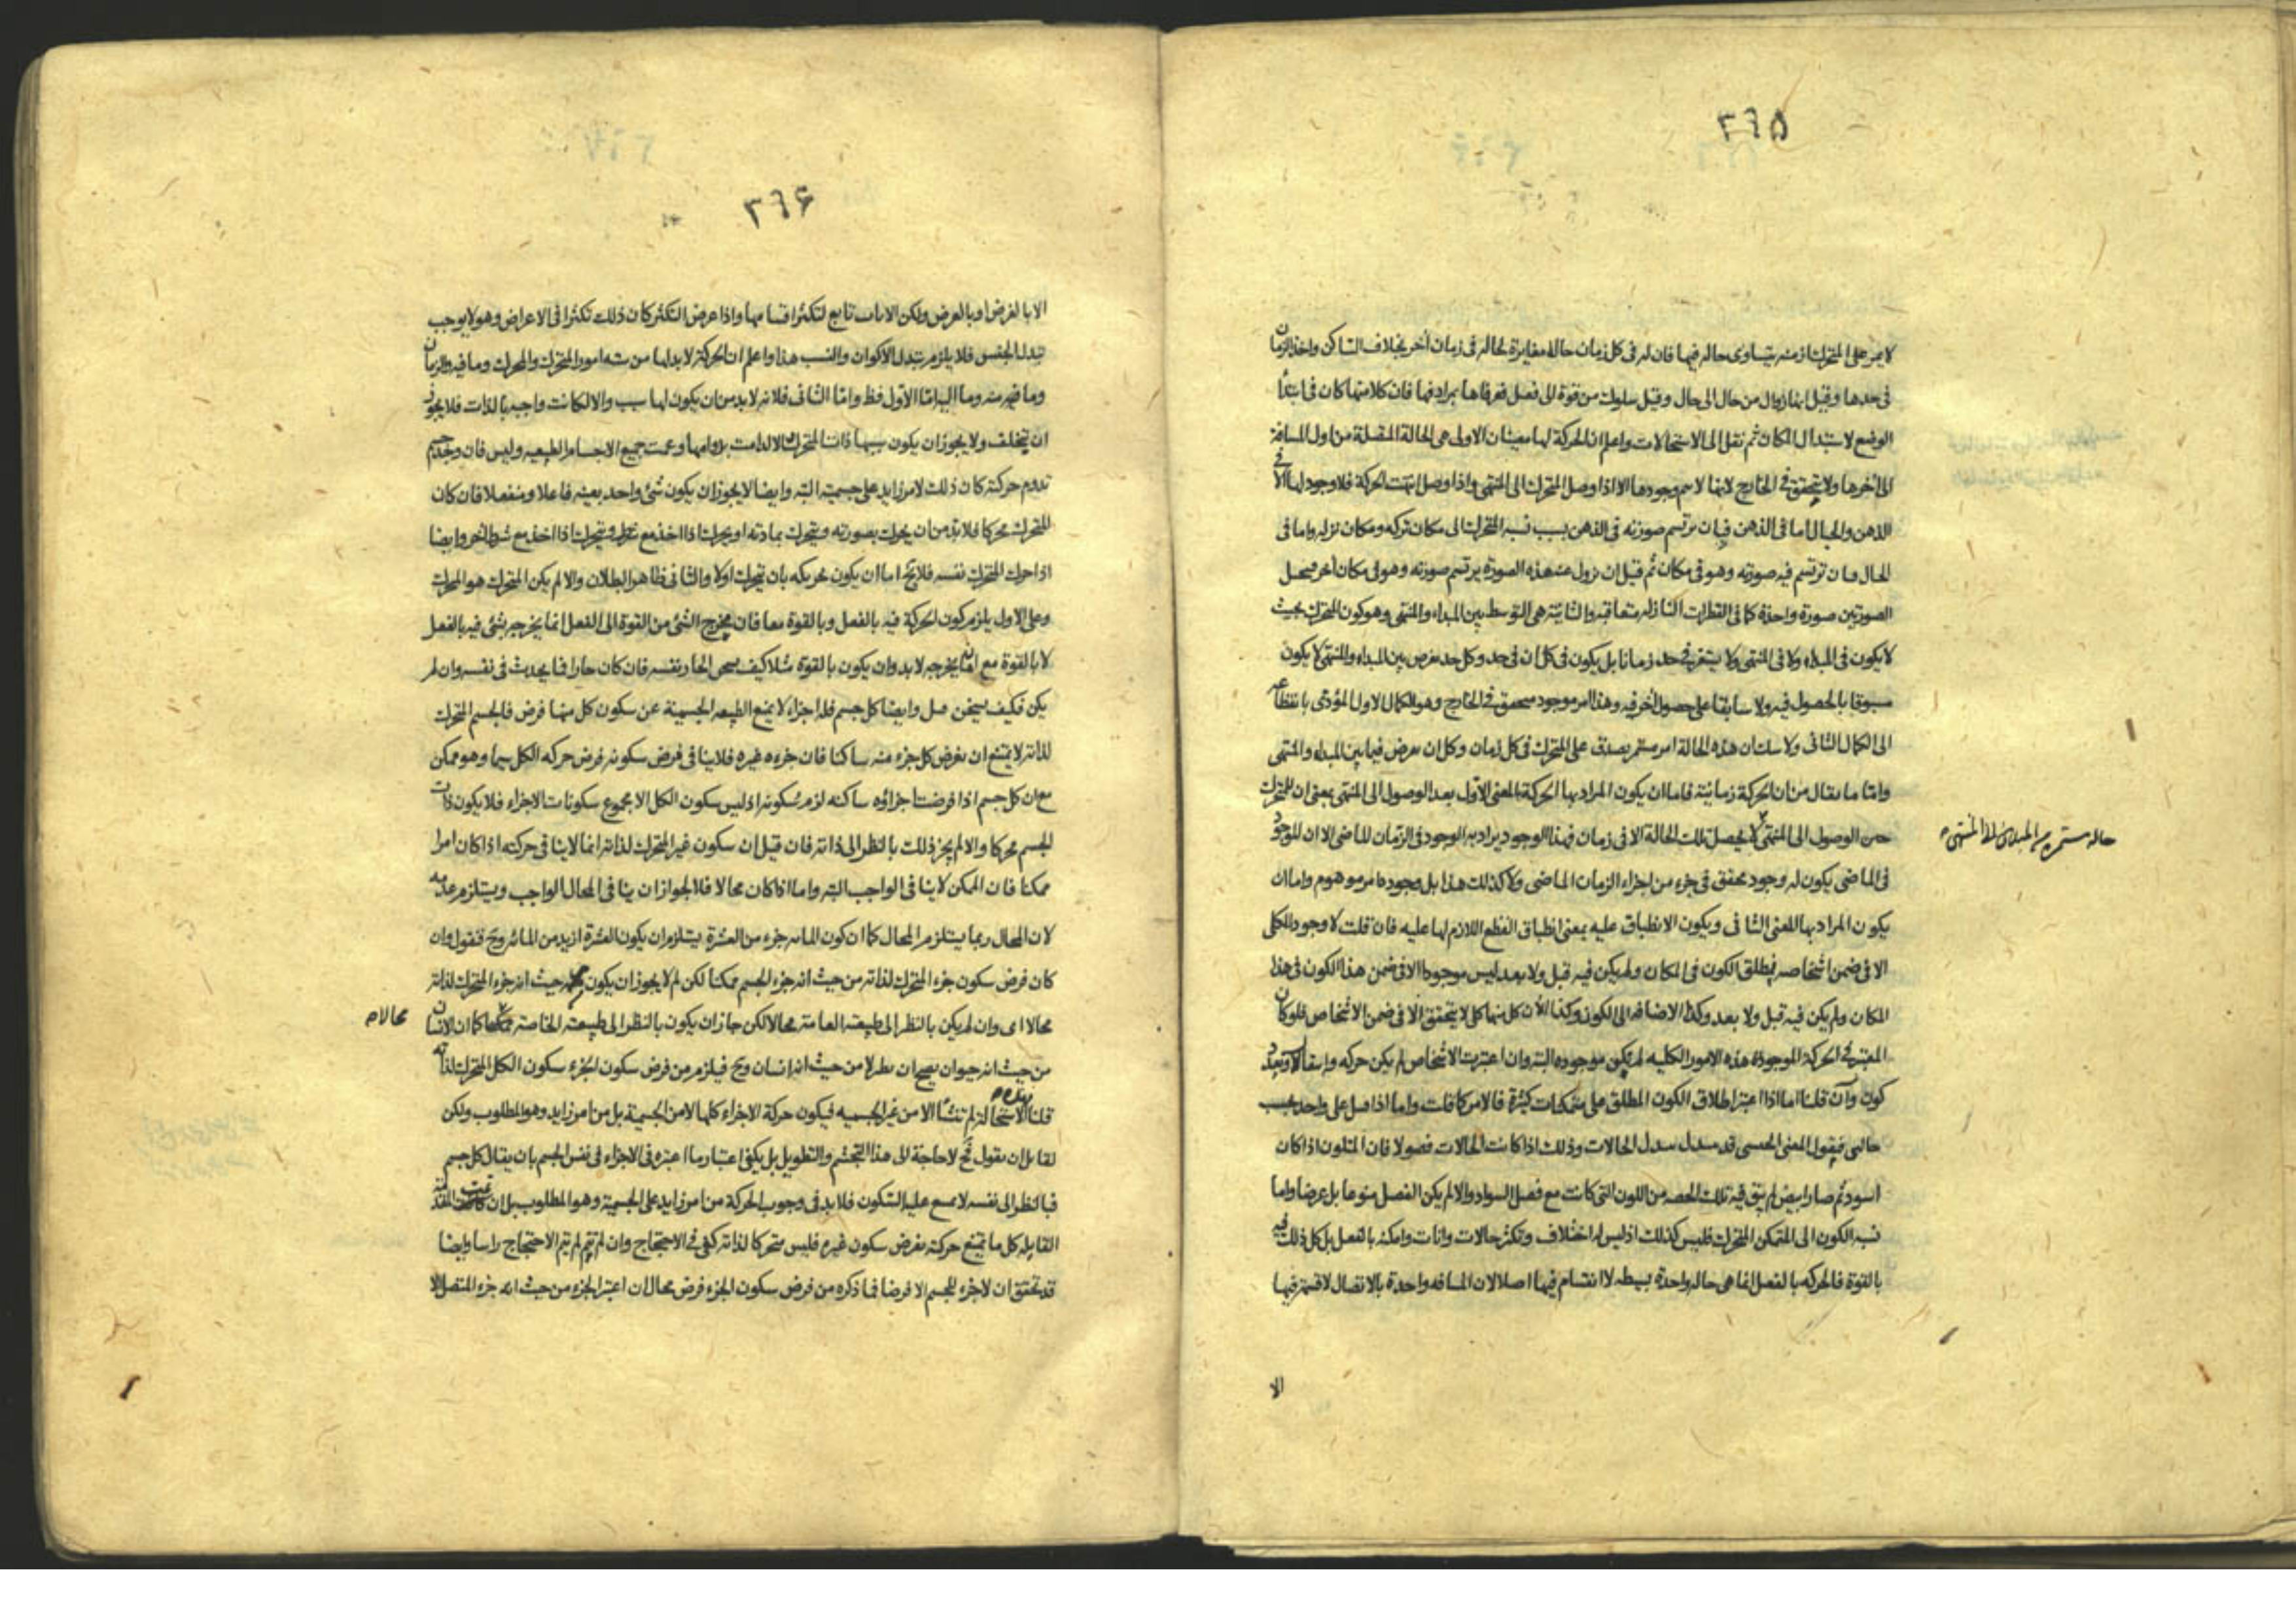 ٣٦٥
لا يمر على المتحرك ازمنه يتساوى حاله فيها فان له فى كل زمان حالة مغايرة لحاله فى زمان آخر بخلاف الساكن واخذ الزمان
فى حدها وقيل انها زوال من حال الى حال وقيل سلوك من قوة الى فعل فعرفاها بمرادفها فان كلا منهما كان فى ابتدا
الوضع لاستبدال المكان ثم نقل الى الاستحالات واعلم ان الحركة لها معينان الاولى هى الحالة المتصلة من اول المسافة
الى آخرها ولا يتحقق فى الخارج لانها لا سم وجودها الا اذا وصل المتحرك الى المنتهى واذا وصل انتهت الحركة فلا وجود لها الا فى
الذهن والخيال اما فى الذهن فبان يرتسم صورته فى الذهن بسبب نسبه المتحرك الى مكان تركه ومكان نزله واما فى
الخيال فبان ترتسم فيه صورته وهو فى مكان ثم قبل ان نزول عنه هذه الصورة يرتسم صورته وهو فى مكان آخر فيحصل
الصورتين صورة واحدة كما فى القطرات النازله متعاقبه والثانية هى التوسط بين المبداء والمنتهى وهو كون المتحرك بحيث
لا يكون فى المبداء ولا فى المنتهى ولا يستقر فى حد زمانا بل يكون فى كل ان فى حد وكل حد يفرض بين المبداء والمنتهى لا يكون
مسبوقا بالحصول فيه ولا سابقا على حصول آخر فيه وهذا امر موجود متحقق فى الخارج وهو الكمال الاول المؤدى بانقطاعه
الى الكمال الثانى ولا شك ان هذه الحالة امر مستمر يصدق على المتحرك فى كل زمان وكل ان يفرض فيما بين المبداء والمنتهى
واما ما يقال من ان الحركة زمانية فاما ان يكون المراد بها الحركة بالمعنى الاول بعد الوصول الى المنتهى بمعنى ان للمتحرك
حين الوصول الى المنتهى لا يحصل تلك الحالة الا فى زمان فهذا الوجود يراد به الوجود فى الزمان الماضى الا ان الموجود
حاله مستمره من المبداى الى المنتهى
فى الماضى يكون له وجود محقق فى جزء من اجزاء الزمان الماضى ولا كذلك هذا بل وجوده امر موهوم واما ان
يكون المراد بها المعنى الثانى ويكون الانطباق عليه بمعنى انطباق القطع اللازم لها عليه فان قلت لا وجود للكلى
الا فى ضمن اشخاصه فمطلق الكون فى المكان ولم يكن فيه قبل ولا بعد ليس موجودا الا فى ضمن هذا الكون فى هذا
المكان ولم يكن فيه قبل ولا بعد وكذا الاضافه الى الكون وكذا الآن كل منها كلى لا يتحقق الا فى ضمن الاشخاص فلو كان
المعتبر فى الحركة الموجودة هذه الامور الكليه لم يكن موجوده البته وان اعتبرت الاشخاص لم يكن حركه
كون وآن قلنا اما اذا اعتبر اطلاق الكون المطلق على متمكنات كثيرة فالامر كما قلت واما اذا حمل على واحد بحسب
حالتى فيقول المعنى الجنسى قد يتبدل بتبدل الحالات وذلك اذا كانت الحالات فصولا فان المتلون اذا كان
اسود ثم صار ابيض لم يبق فيه تلك الحصه من اللون التى كانت مع فصل السواد والا لم يكن الفصل منوعا بل عرضا واما
نسبه الكون الى المتمكن المتحرك فليس كذلك اذ ليس له اختلاف وتكثر حالات وانات وامكنه بالفعل بل كل ذلك فيه
بالقوة فالحركه بالفعل انما هى حاله واحدة بسيطه لا انقسام فيها اصلا لان المسافه واحدة بالاتصال لا قسمة فيها
الا
٣٦۶
الا بالفرض او بالعرض ولكن الانات تابع لتكثر اقسامها واذا عرض التكثر كان ذلك تكثرا فى الاعراض وهو لا يوجب
تبدل الجنس فلا يلزم تبدل الاكوان والنسب هذا واعلم ان الحركة لا بد لها من سته امور المتحرك والمحرك وما فيه والزمان
وما منه وما اليه اما الاول فظ واما الثانى فلانه لا بد من ان يكون لها سبب والا لكانت واجبه بالذات فلا يجوز
ان يتخلف ولا يجوز ان يكون سببها ذات المتحرك والا لدامت بدوامها وعمت جميع الاجسام الطبيعيه وليس فان وجد جسم
تدوم حركته كان ذلك لامر زايد على جسميته البته وايضا لا يجوز ان يكون شئ واحد بعينه فاعلا ومنفعلا فان كان
المتحرك محركا فلا بد من ان يحرك بصورته ويتحرك بمادته او يحرك اذا اخذ مع شرط ويتحرك اذا اخذ مع شرط آخر وايضا
اذا حرك المتحرك نفسه فلا يخ اما ان يكون تحريكه بان يتحرك اولا والثانى ظاهر البطلان والا لم يكن المتحرك هو المحرك
وعلى الاول يلزم كون الحركة فيه بالفعل وبالقوة معا فان مخرج الشئ من القوة الى الفعل انما يخرجه بشئ فيه بالفعل
لا بالقوة مع انه يخرجه لا بد وان يكون بالقوة مثلا كيف يسخن الحار نفسه فان كان حارا فما يحدث فى نفسه وان لم
يكن فكيف يسخن وايضا كل جسم فله اجزاء لا يمنع الطبيعه الجسمية عن سكون كل منها فرض فالجسم المتحرك
لذاته لا يمتنع ان يفرض كل جزء منه ساكنا فان جزءه غيره فلا ينافى فرض سكونه فرض حركه الكل سيما وهو ممكن
مع ان كل جسم اذا فرضت اجزاؤه ساكنه لزم سكونه اذ ليس سكون الكل الا مجموع سكونات الاجزاء فلا يكون ذات
الجسم محركا والا لم يجز ذلك بالنظر الى ذاته فان قيل ان سكون غير المتحرك لذاته انما لا ينافى حركته اذا كان امرا
ممكنا فان الممكن لا ينافى الواجب البته واما اذا كان محالا فلا لجواز ان ينافى المحال الواجب ويستلزم عدمه
لان المحال ربما يستلزم المحال كما ان كون المائه جزء من العشرة يستلزم ان يكون العشرة ازيد من المائه وح فنقول وان
كان فرض سكون جزء المتحرك لذاته من حيث انه جزء الجسم ممكنا لكن لم لا يجوز ان يكون من حيث انه جزء المتحرك لذاته
محالا اى وان لم يكن بالنظر الى طبيعته العامة محالا لكن جاز ان يكون بالنظر الى طبيعته الخاصة كما ان الانسان
محالا م
من حيث انه حيوان يصح ان يطير لا من حيث انه انسان وح فيلزم من فرض سكون الجزء سكون الكل المتحرك لذاته
قلنا الاستحالة لم تنشأ الا من غير الجسميه فيكون حركة الاجزاء كلها لا من الجسمية بل من امر زايد وهو المطلوب ولكن
لقايل ان يقول ح لا حاجة الى هذا التجشم والتطويل بل يكفى اعتبار ما اعتبره فى الاجزاء فى نفس الجسم بان يقال كل جسم
فبالنظر الى نفسه لا يمتنع عليه السكون فلا بد فى وجوب الحركة من امر زايد على الجسمية وهو المطلوب بل ان تمت المقدمة
القايله كل ما يمتنع حركته بفرض سكون غيره فليس متحركا لذاته كفى فى الاحتجاج وان لم تتم لم يتم الاحتجاج راسا وايضا
قد تحقق ان لا جزء للجسم الا فرضا فما ذكره من فرض سكون الجزء فرض محال ان اعتبر الجزء من حيث انه جزء المتصل الا